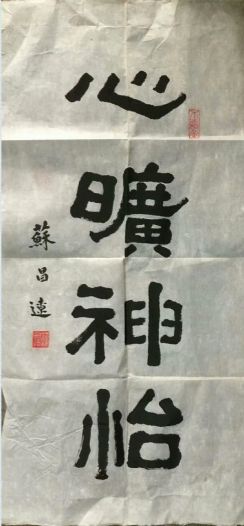 心曠神怡
蘇昌遠